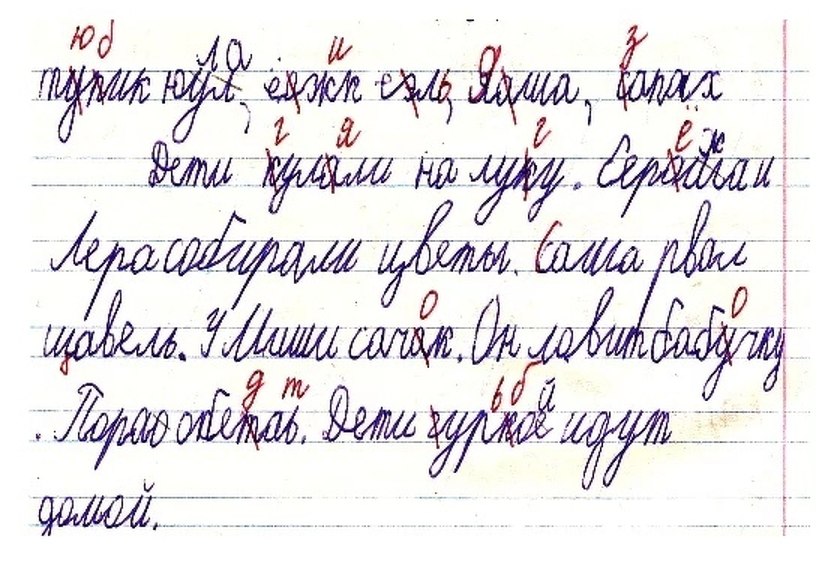 ю б ла и з
тупик юул, ёяжк сэль, Яяша, сапах
г я г ё ж
Дети кулали на луку. Серозьга и
Лера собирали цветы. Саша рвал
о о
щавель. У Миши сачак. Он ловит бабучку
д т ь б й
. Пора обетаь. Дети гуркое идут
домой.